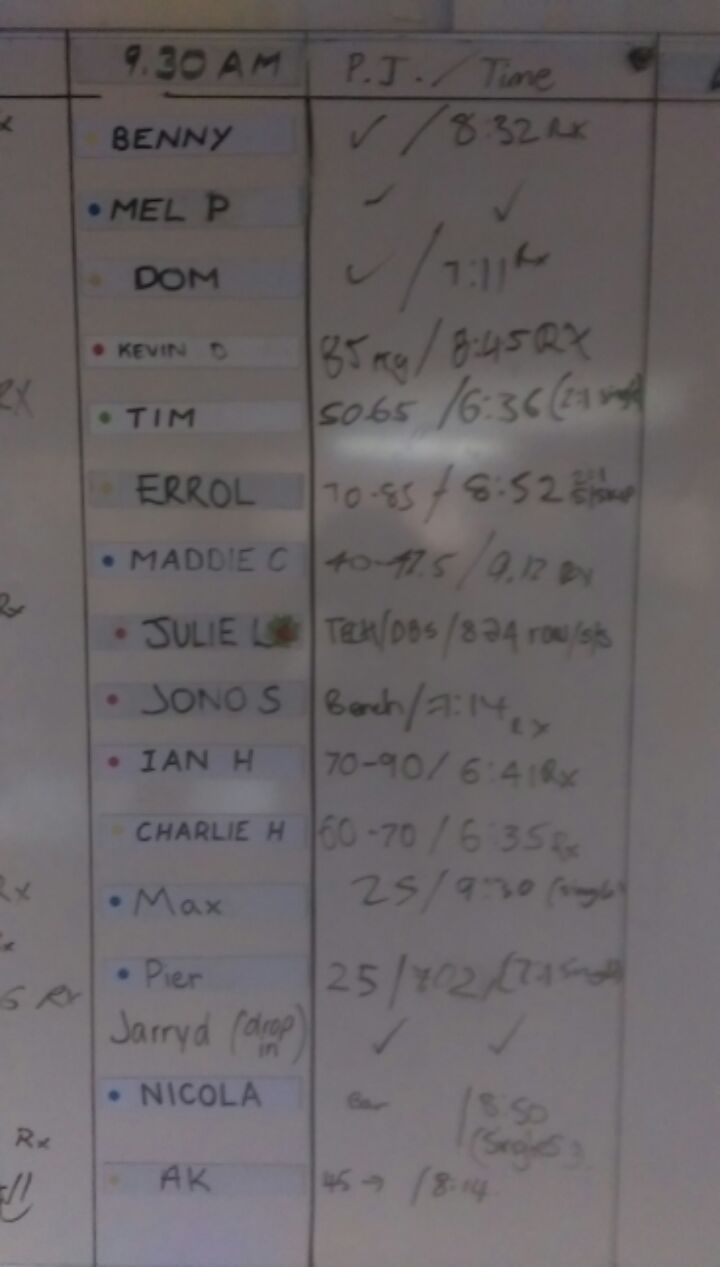 9.30 AM P.J. / Time
BENNY ✓ / 8:32 Rx
MEL P ✓ ✓
DOM ✓ / 7:11 Rx
KEVIN D 85 kg / 8:45 RX
TIM 50 65 / 6:36 (2:1
ERROL 70-85 / 8:52
MADDIE C 40-47.5 /
JULIE L /DBs / 824 row/s/s
JONO S Bench / 7:14 Rx
IAN H 70-90 / 6:41 Rx
CHARLIE H 60-70 / 6:35 Rx
Max 25 / 9:30 (singles
Pier 25 / 702
Jarryd (drop in) ✓ ✓
NICOLA Bar / 8:50
(Singles)
AK 45 → / 8:14
RX
Rx
Rx
Rx
Rx